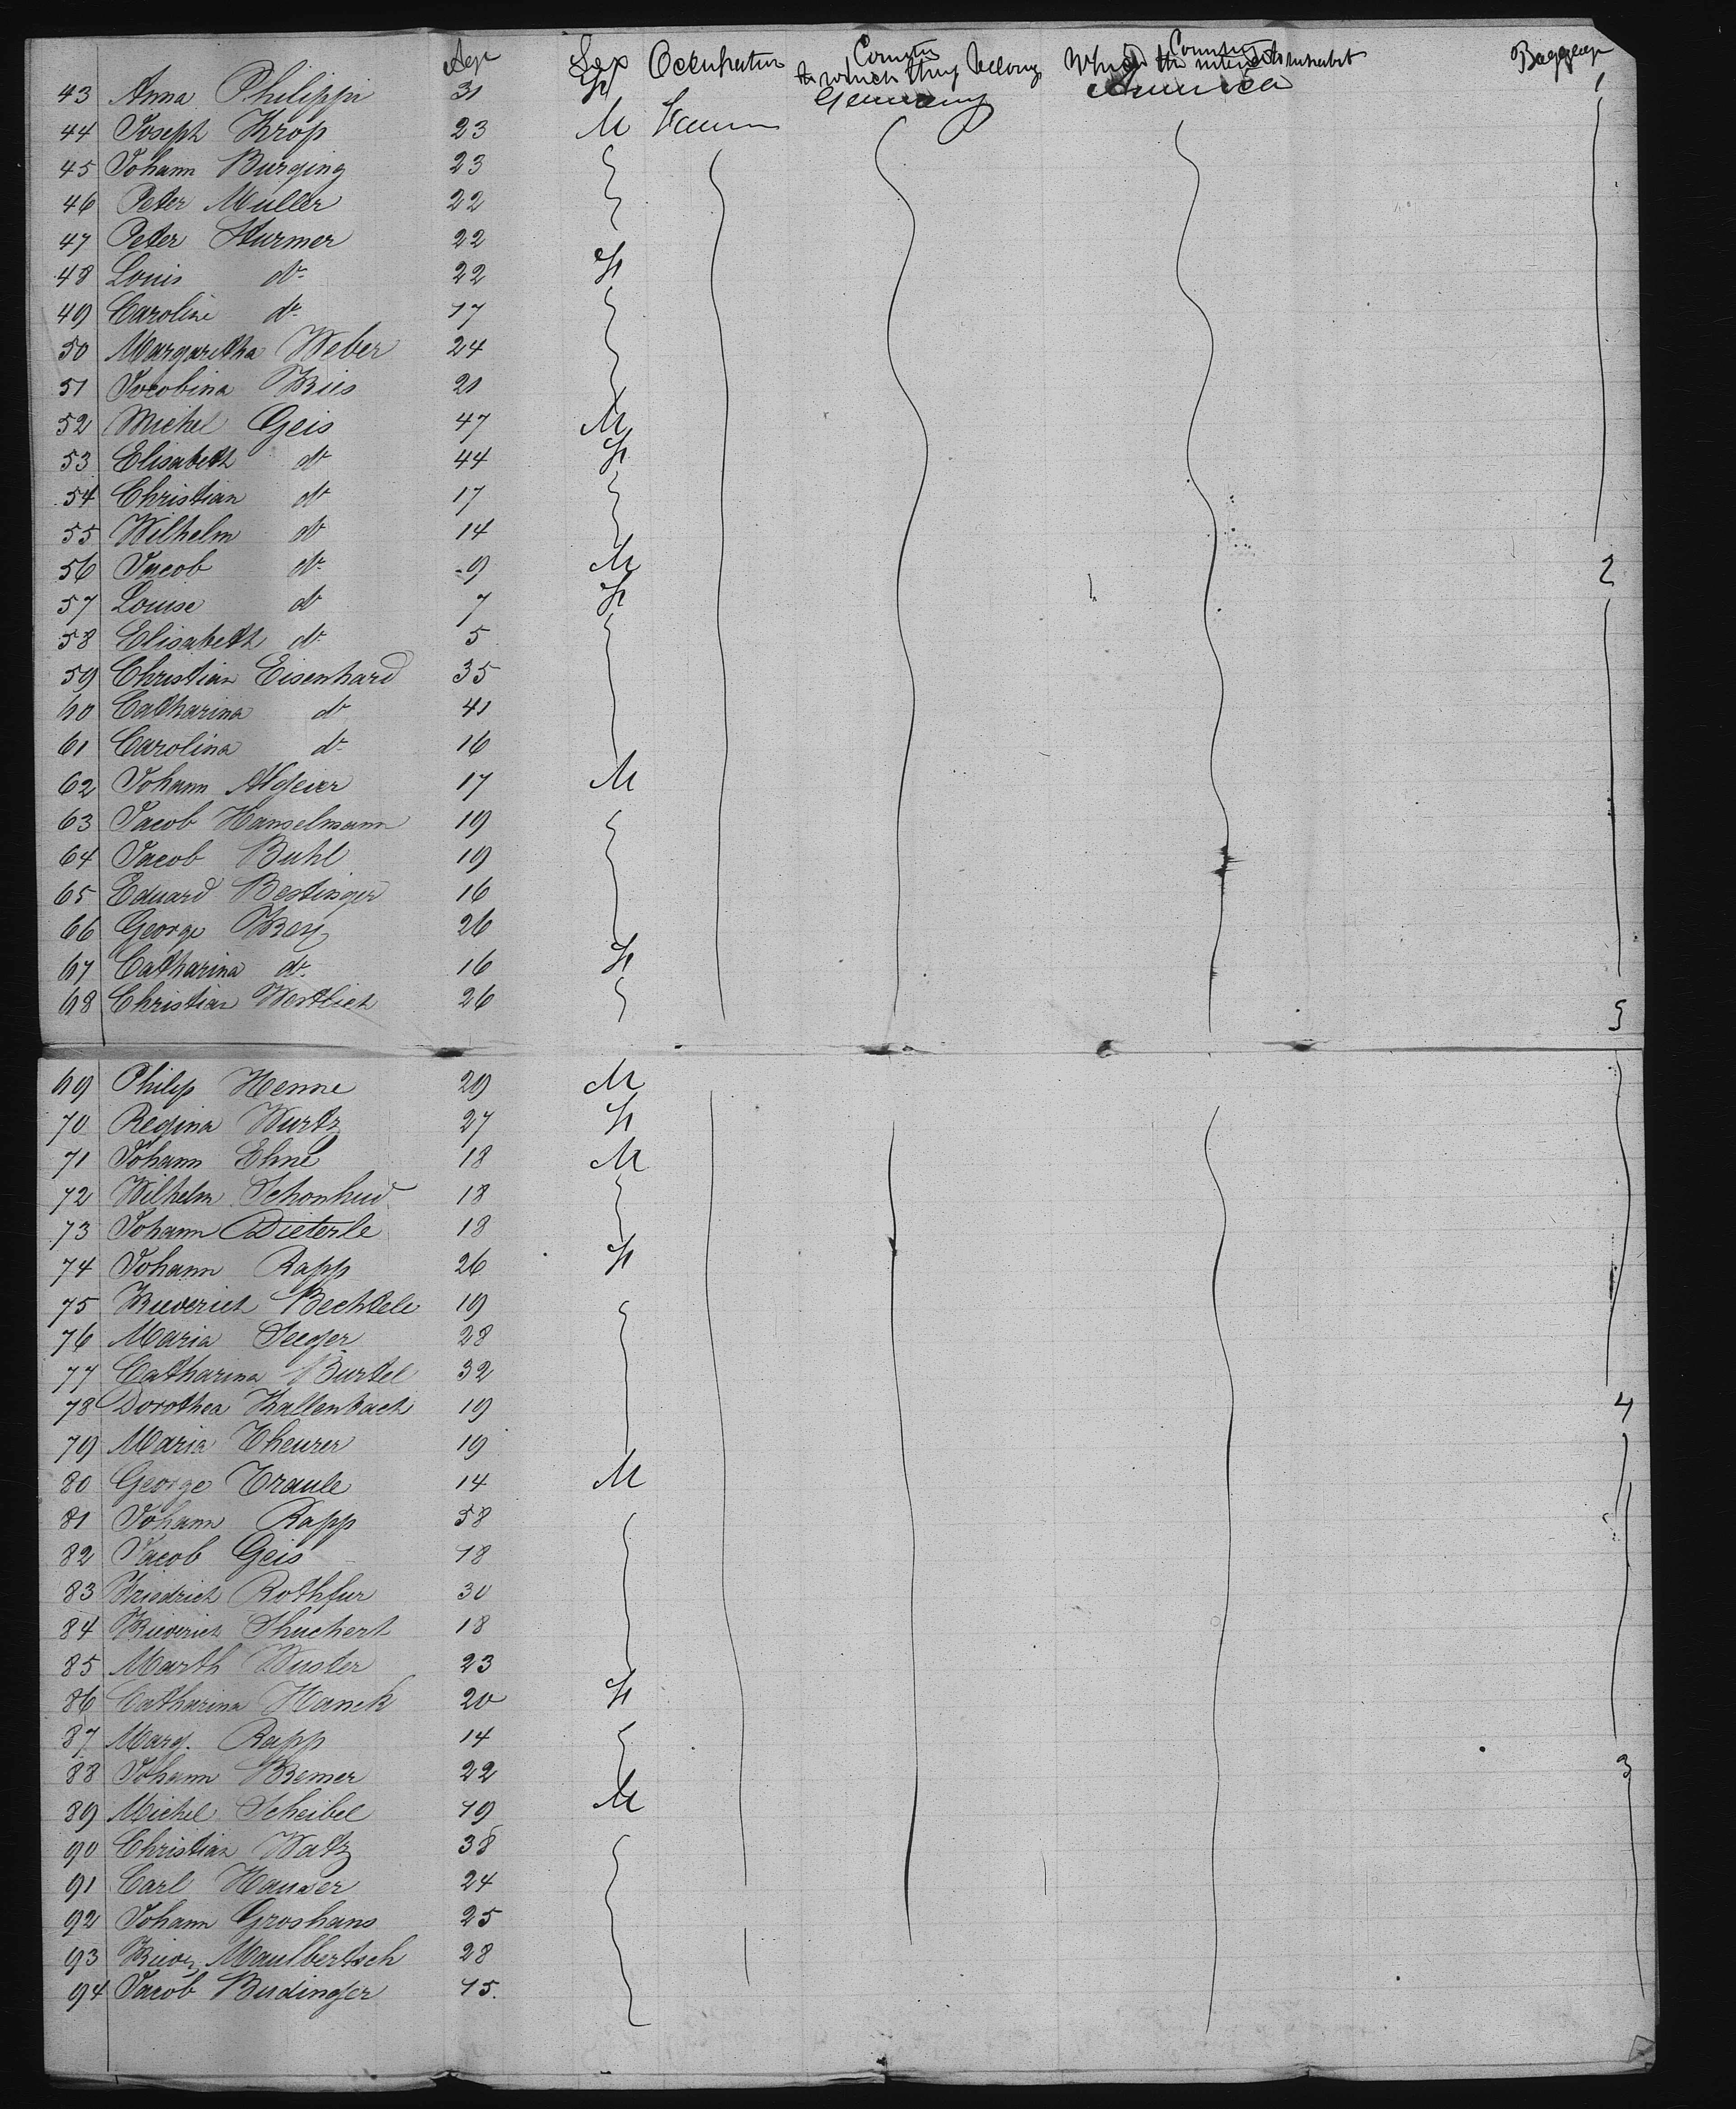 Age Sex Occupation Country to which they belong Country Which they intend to inhabit Baggage
43 Anna Philippi 31 F Germany America 1
44 Joseph Krop 23 M Farmer
45 Johann Burging 23
46 Peter Muller 22
47 Peter Sturmer 22
48 Louis do 22 F
49 Caroline do 17
50 Margaretha Weber 24
51 Jacobina Kries 21
52 Michel Geis 47 M
53 Elisabeth do 44 F
54 Christian do 17
55 Wilhelm do 14
56 Jacob do 9 M 2
57 Louise do 7 F
58 Elisabeth do 5
59 Christian Eisenhard 35
60 Catharina do 41
61 Carolina do 16
62 Johann Algeier 17 M
63 Jacob Hanselmann 19
64 Jacob Buhl 19
65 Eduard Bestinger 16
66 George 26
67 Catharina do 16 F
68 Christian 26 3
69 Philip Henne 29 M
70 Regina Wurtz 27 F
71 Johann Ehne 18 M
72 Wilhelm Schonhud 18
73 Johann Dieterle 18
74 Johann Rapp 26 F
75 Bechtele 19
76 Maria Seeger 28
77 Catharina Burtel 32
78 Dorothea Kallenbach 19 4
79 Maria Theurer 19
80 George Traule 14 M
81 Johann Rapp 58
82 Jacob Geis 18
83 Friedrich Rothfur 30
84 Shuchert 18
85 Marth Wuster 23
86 Catharina Hanek 20 F
87 Marg. Rapp 14
88 Johann Bremer 22 3
89 Michel Scheibel 19 M
90 Christian Waltz 38
91 Carl Hauser 24
92 Johann Groshans 25
93 Maulbertsch 28
94 Jacob Budinger 15.